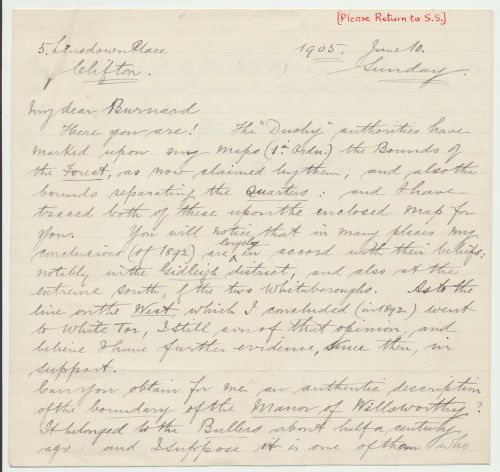 [Please Return to S.S.]
5. Lansdown Place 1905. June 10.
Clifton. Sunday.
My dear Burnard
Here you are! The "Duchy" authorities have
marked upon my maps (1in Ordn.) the Bounds of
the Forest, as now claimed by them, and also the
bounds separating the Quarters: and I have
traced both of these upon the enclosed map for
you. You will notice, that in many places my
conclusions (of 1892) are largely in accord with their beliefs:
notably in the Gidleigh district, and also at the
extreme South, of the two Whitaboroughs. As to the
line on the West, which I concluded (in 1892) went
to White Tor, I still am of that opinion, and
believe I have further evidence, since then, in
support.
Can you obtain for me an authentic description
of the boundary of the Manor of Willsworthy?
It belonged to the Bullers about half a century
ago: and I suppose it is one of them who